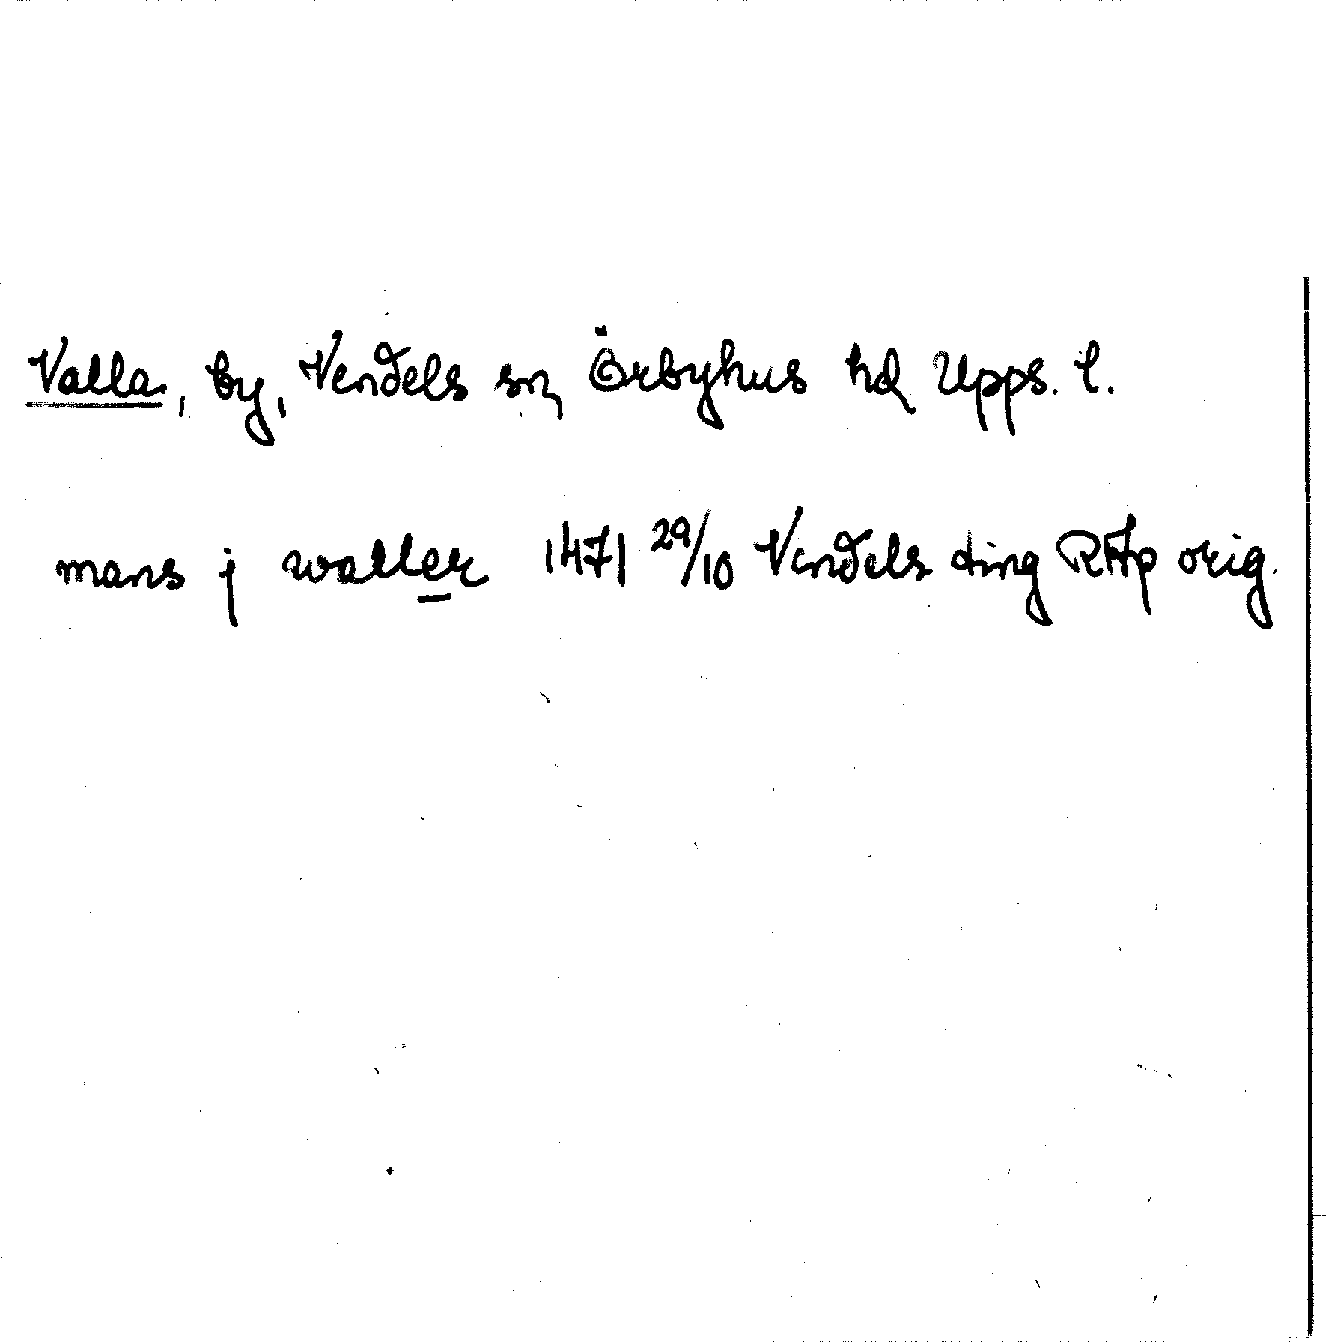 Valla, by, Vendels sn Örbyhus hd Upps. l.
mans j waller 1471 29/10 Vendels ting RAp orig.